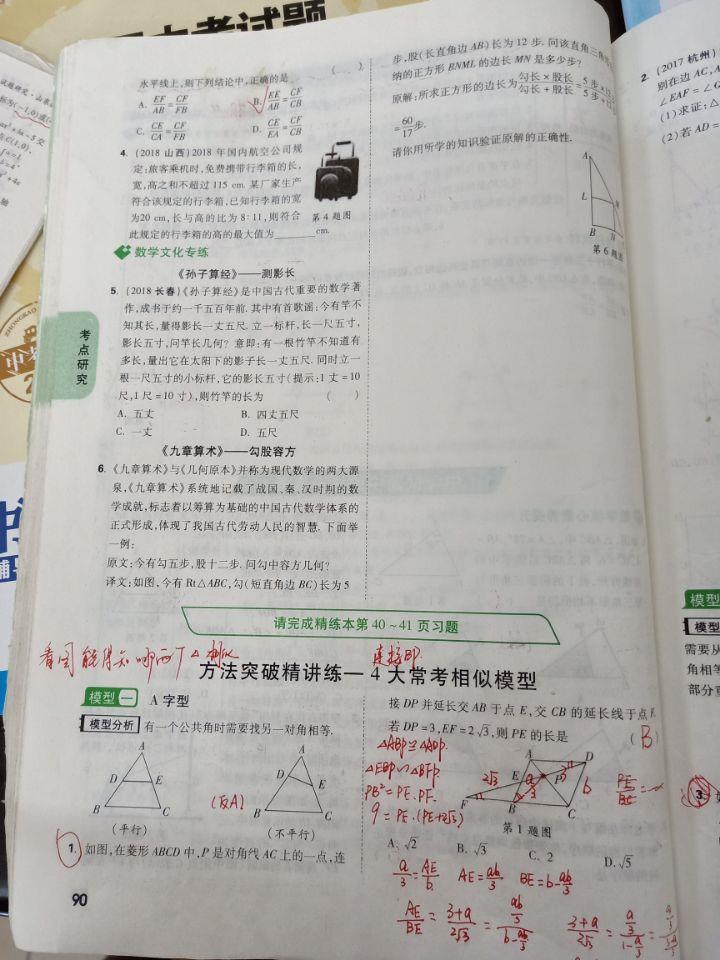 水平线上,则下列结论中,正确的是 ( )
A. EF/AB = CF/FB B. EF/AB = CF/CB
C. CE/CA = CF/FB D. CE/EA = CF/CB
4. (2018 山西) 2018 年国内航空公司规
定:旅客乘机时,免费携带行李箱的长,
宽,高之和不超过 115 cm. 某厂家生产
符合该规定的行李箱,已知行李箱的宽
为20 cm,长与高的比为 8∶11,则符合
此规定的行李箱的高的最大值为______cm.
第 4 题图
数学文化专练
《孙子算经》——测影长
5. (2018 长春)《孙子算经》是中国古代重要的数学著
作,成书于约一千五百年前. 其中有首歌谣:今有竿不
知其长,量得影长一丈五尺. 立一标杆,长一尺五寸,
影长五寸,问竿长几何? 意即:有一根竹竿不知道有
多长,量出它在太阳下的影子长一丈五尺. 同时立一
根一尺五寸的小标杆,它的影长五寸(提示:1 丈 = 10
尺,1 尺 = 10 寸),则竹竿的长为 ( )
A. 五丈 B. 四丈五尺
C. 一丈 D. 五尺
《九章算术》——勾股容方
6. 《九章算术》与《几何原本》并称为现代数学的两大源
泉,《九章算术》系统地记载了战国、秦、汉时期的数
学成就,标志着以筹算为基础的中国古代数学体系的
正式形成,体现了我国古代劳动人民的智慧. 下面举
一例:
原文:今有勾五步,股十二步. 问勾中容方几何?
译文:如图,今有 Rt△ABC,勾(短直角边 BC)长为 5
步,股(长直角边 AB)长为 12 步. 问该直角三角形
纳的正方形 BNML 的边长 MN 是多少步?
原解:所求正方形的边长为 勾长 × 股长/勾长 + 股长 = 5 步 × 12/5 步 + 12
= 60/17 步.
请你用所学的知识验证原解的正确性.
A
L
M
B N
第 6 题图
考点研究
请完成精练本第 40 ~ 41 页习题
看图能得知哪两个△相似
连接BP.
方法突破精讲练— 4 大常考相似模型
模型一 A 字型
模型分析 有一个公共角时需要找另一对角相等.
A
D E
B C
(平行)
(反A)
A
D
E
B C
(不平行)
1. 如图,在菱形 ABCD 中,P 是对角线 AC 上的一点,连
接 DP 并延长交 AB 于点 E,交 CB 的延长线于点 F.
若 DP = 3,EF = 2√3,则 PE 的长是 (B)
△ABP≌△ADP.
△EBP∽△BFP
PB² = PE·PF.
9 = PE·(PE+2√3)
A D
E P
F B C
2√3
3
a
b
第 1 题图
A. √2 B. √3 C. 2 D. √5
a/3 = AE/b AE = ab/3 BE = b - ab/3
AE/BE = 3+a/2√3 = ab/3 / b - ab/3
3+a/2√3 = a/3 / 1 - a/3
90
2. (2017 杭州)
别在边 AC,A
∠EAF = ∠G
(1)求证:△
(2)若 AD =
模型
模型
需要从
角相等
部分重
3.